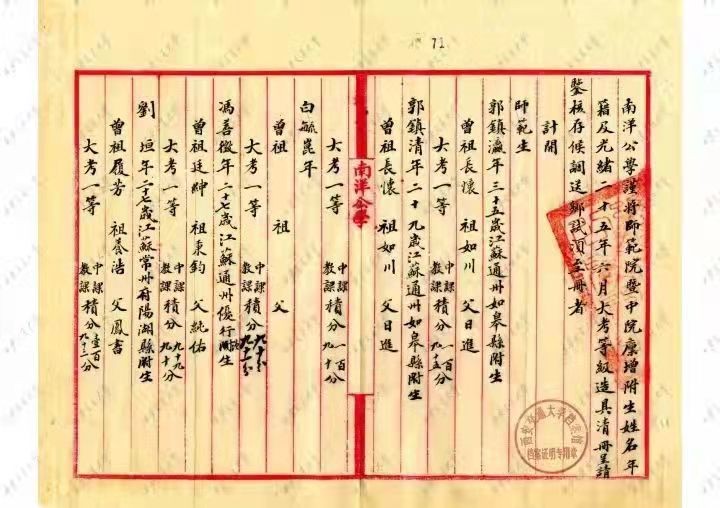 71
南洋公學謹將師範院暨中院廩增附生姓名年
籍及光緒二十五年六月大考等級造具清冊呈請
鑒核存候調送鄉試須至冊者
計開
師範生
郭鎮瀛年三十五歲江蘇通州如皋縣附生
曾祖長懷 祖如川 父日進
大考一等 中課 教課 積分 一百 九十五分
郭鎮清年二十九歲江蘇通州如皋縣附生
曾祖長懷 祖如川 父日進
大考一等 中課 教課 積分 一百 九十分
南洋公學
白毓崑年
曾祖 祖 父
大考一等 中課 教課 積分
馮善徵年二十七歲江蘇通州優行附生
曾祖廷紳 祖東鈞 父純佑
大考一等 中課 教課 積分 九十九 九十分
劉垣年二十七歲江蘇常州府陽湖縣附生
曾祖履芳 祖養浩 父鳳書
大考一等 中課 教課 積分 壹百 九十三分
西安交通大學檔案館
檔案證明專用章